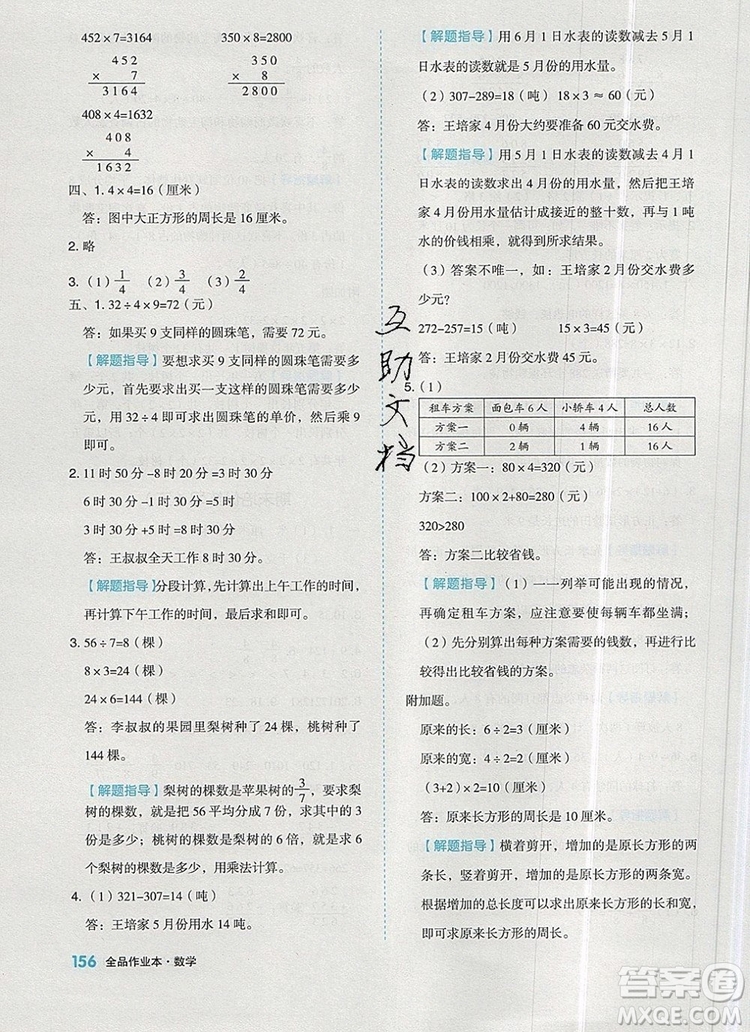 452×7=3164 350×8=2800
4 5 2
× 7
3 1 6 4
3 5 0
× 8
2 8 0 0
408×4=1632
4 0 8
× 4
1 6 3 2
四、1. 4×4=16（厘米）
答：图中大正方形的周长是 16 厘米。
2. 略
3.（1）1/4 （2）3/4 （3）2/4
五、1. 32÷4×9=72（元）
答：如果买 9 支同样的圆珠笔，需要 72 元。
【解题指导】要想求买 9 支同样的圆珠笔需要多
少元，首先要求出每支圆珠笔的单价是多少
元，用 32÷4 即可求出圆珠笔的单价，然后乘 9
即可。
2. 11 时 50 分 -8 时 20 分 =3 时 30 分
6 时 30 分 -1 时 30 分 =5 时
3 时 30 分 +5 时 =8 时 30 分
答：王叔叔全天工作了 8 时 30 分。
【解题指导】分段计算，先计算出上午工作的时间，
再计算下午工作的时间，最后求和即可。
3. 56÷7=8（棵）
8×3=24（棵）
24×6=144（棵）
答：李叔叔的果园里梨树种了 24 棵，桃树种了
144 棵。
【解题指导】梨树的棵数是苹果树的 3/7，要求梨
树的棵数，就是把 56 平均分成 7 份，求其中 3
份是多少；桃树的棵数是梨树的 6 倍，就是求 6
个梨树的棵数是多少，用乘法计算。
4.（1）321-307=14（吨）
答：王培家 5 月份用水 14 吨。
156 全品作业本·数学
【解题指导】用 6 月 1 日水表的读数减去 5 月 1
日水表的读数就是 5 月份的用水量。
（2）307-289=18（吨） 18×3≈60（元）
答：王培家 4 月份大约要准备 60 元交水费。
【解题指导】用 5 月 1 日水表的读数减去 4 月 1
日水表的读数求出 4 月份的用水量，然后把王培
家 4 月份用水量估计成接近的整十数，再与 1 吨
水的价钱相乘，即可得到所求结果。
（3）答案不唯一，如：王培家 2 月份交水费多
少元？
272-257=15（吨） 15×3=45（元）
答：王培家 2 月份交水费 45 元。
5.（1）
租车方案 面包车 6 人 小轿车 4 人 总人数
方案一 0 辆 4 辆 16 人
方案二 2 辆 1 辆 16 人
（2）方案一：80×4=320（元）
方案二：100×2+80=280（元）
320>280
答：方案二比较省钱。
【解题指导】（1）一一列举可能出现的情况，
再确定租车方案，尽量使每辆车都坐满。
（2）先分别算出每种方案需要的钱数，再确定
比较省钱的方案。
附加题。
原来的长：6÷2=3（厘米）
原来的宽：4÷2=2（厘米）
（3+2）×2=10（厘米）
答：原来长方形的周长是10厘米。
【解题指导】横着剪开，增加的是原长方形的两
条长，竖着剪开，增加的是原长方形的两条宽。
根据增加的厘米数，可以求出原来长方形的长
和宽，即可求出原来长方形的周长。
互助文档
答案圈
MXQE.COM